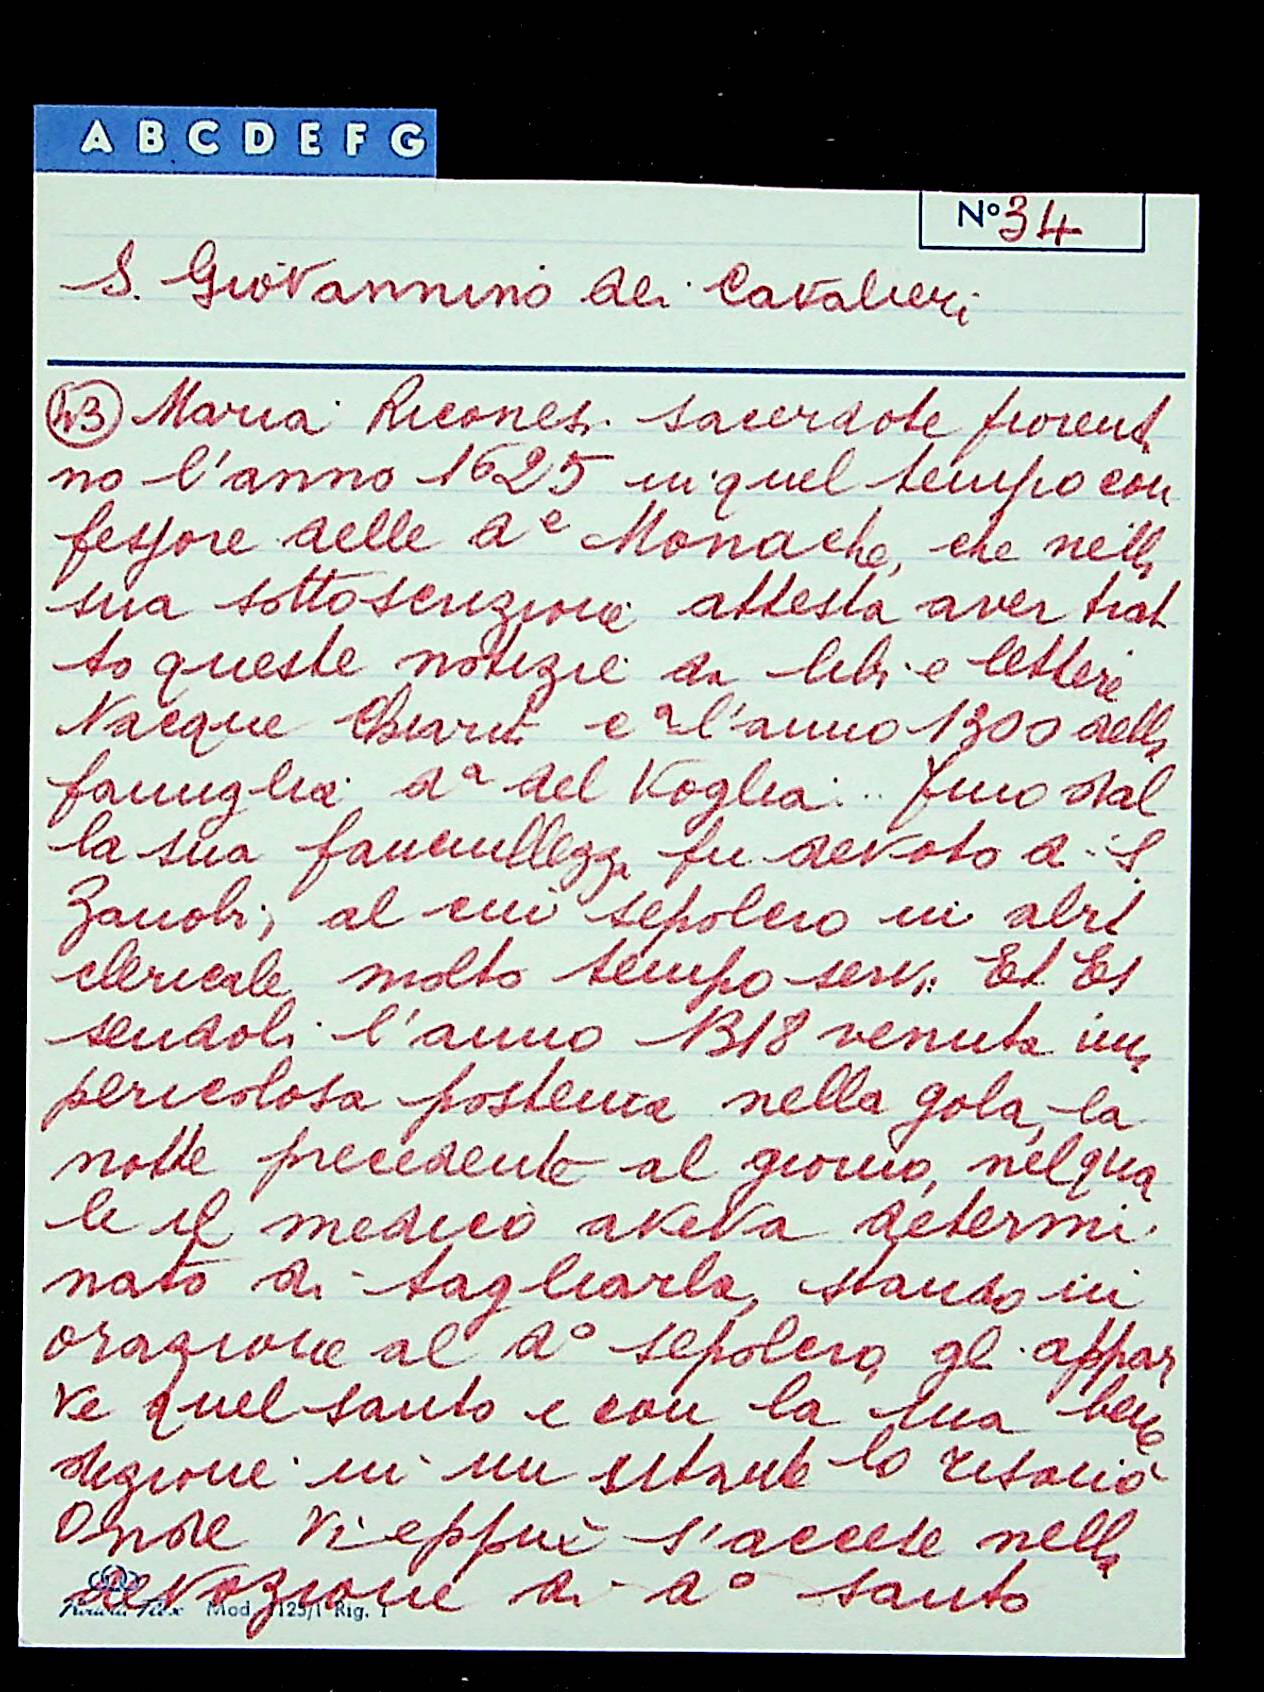 A B C D E F G
Nº 34
S. Giovannino dei Cavalieri
43 Maria Riconesi sacerdote fiorenti
no l'anno 1625 in quel tempo con
fessore delle dᵉ Monache, che nella
sua sottoscrizione attesta aver trat
to queste notizie da libri e lettere
Nacque cᵃ l'anno 1300 della
famiglia dᵃ del Voglia. Fino dal
la sua fanciullezza fu devoto di S.
Zanobi, al cui sepolcro in abit
clericale molto tempo servì. Et Es
sendoli l'anno 1318 venuta una
pericolosa postema nella gola, la
notte precedente al giorno, nel qua
le il medico aveva determi
nato di tagliarla, stando in
orazione al dº sepolcro, gl appar
ve quel santo e con la sua bene
dizione in un istante lo risanò
Onde vieppiù s'accese nella
devozione di dº santo
Mod. 125/1 Rig. 1